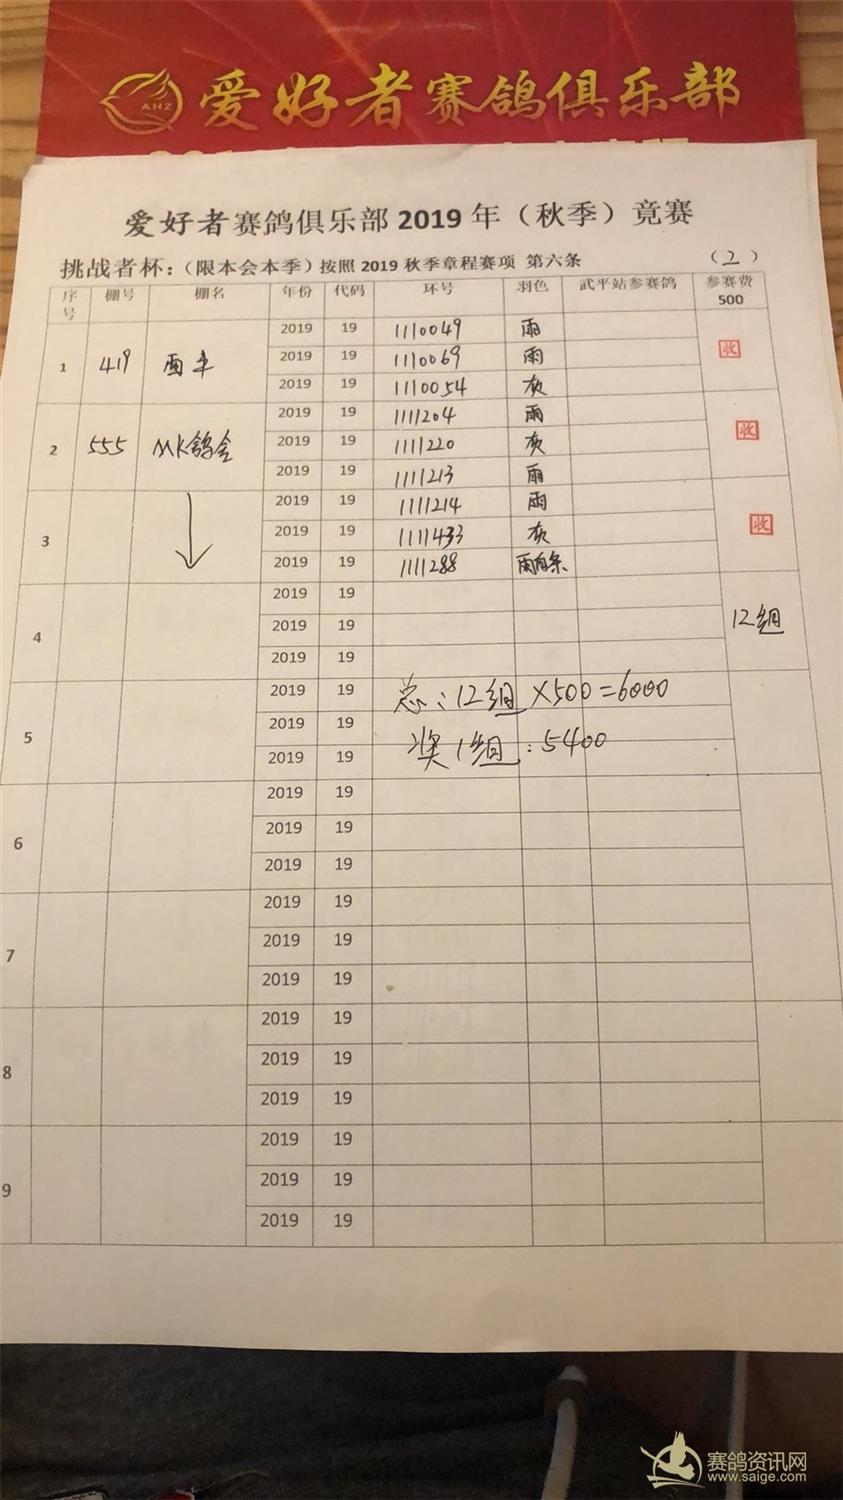 AHZ
爱好者赛鸽俱乐部
爱好者赛鸽俱乐部 2019 年（秋季）竞赛
挑战者杯：（限本会本季）按照 2019 秋季章程赛项 第六条 （2）
序号 棚号 棚名 年份 代码 环号 羽色 武平站参赛鸽 参赛费 500
2019 19 1110049 雨
1 419 2019 19 1110069 雨 收
2019 19 1110054 灰
2019 19 1111204 雨
2 555 MK鸽舍 2019 19 1111220 灰 收
2019 19 1111213 雨
2019 19 1111214 雨
3 2019 19 1111433 灰 收
2019 19 1111288 雨白条
2019 19
4 2019 19 12组
2019 19
2019 19 总：12组×500=6000
5 2019 19
2019 19 奖1组：5400
2019 19
6 2019 19
2019 19
2019 19
7 2019 19
2019 19
2019 19
8 2019 19
2019 19
2019 19
9 2019 19
2019 19
赛鸽资讯网
www.saige.com